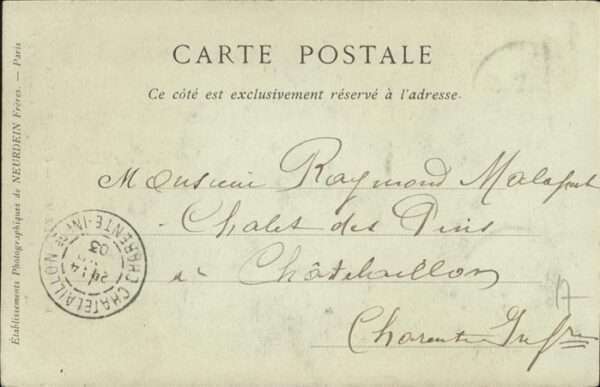 CARTE POSTALE
Ce côté est exclusivement réservé à l'adresse.
Monsieur Raymond
Chalet des Pins
à Châtelaillon
Charente Infre
17
Établissements Photographiques de NEURDEIN Frères. — Paris
CHATELAILLON
CHARENTE-INFRE
03